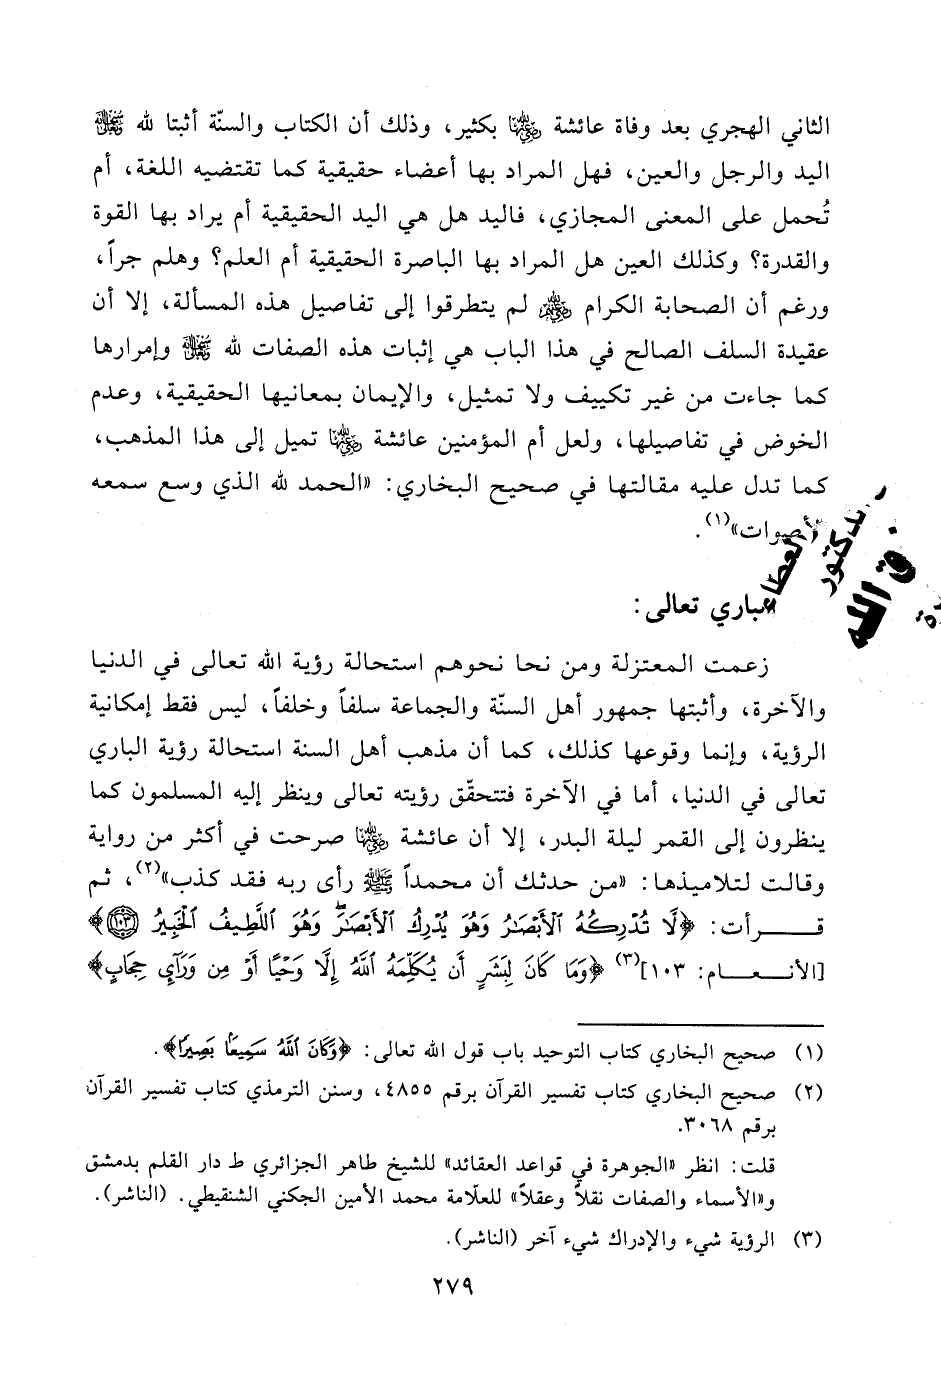 الثاني الهجري بعد وفاة عائشة رضي الله عنها بكثير، وذلك أن الكتاب والسنّة أثبتا لله ﷻ
اليد والرجل والعين، فهل المراد بها أعضاء حقيقية كما تقتضيه اللغة، أم
تُحمل على المعنى المجازي، فاليد هل هي اليد الحقيقية أم يراد بها القوة
والقدرة؟ وكذلك العين هل المراد بها الباصرة الحقيقية أم العلم؟ وهلم جراً،
ورغم أن الصحابة الكرام رضي الله عنهم لم يتطرقوا إلى تفاصيل هذه المسألة، إلا أن
عقيدة السلف الصالح في هذا الباب هي إثبات هذه الصفات لله ﷻ وإمرارها
كما جاءت من غير تكييف ولا تمثيل، والإيمان بمعانيها الحقيقية، وعدم
الخوض في تفاصيلها، ولعل أم المؤمنين عائشة رضي الله عنها تميل إلى هذا المذهب،
كما تدل عليه مقالتها في صحيح البخاري: «الحمد لله الذي وسع سمعه
أصوات»(١).
لباري تعالى:
زعمت المعتزلة ومن نحا نحوهم استحالة رؤية الله تعالى في الدنيا
والآخرة، وأثبتها جمهور أهل السنّة والجماعة سلفاً وخلفاً، ليس فقط إمكانية
الرؤية، وإنما وقوعها كذلك، كما أن مذهب أهل السنة استحالة رؤية الباري
تعالى في الدنيا، أما في الآخرة فتتحقّق رؤيته تعالى وينظر إليه المسلمون كما
ينظرون إلى القمر ليلة البدر، إلا أن عائشة رضي الله عنها صرحت في أكثر من رواية
وقالت لتلاميذها: «من حدثك أن محمداً ﷺ رأى ربه فقد كذب»(٢)، ثم
قـــرأت: ﴿لَا تُدْرِكُهُ ٱلْأَبْصَـٰرُ وَهُوَ يُدْرِكُ ٱلْأَبْصَـٰرَۖ وَهُوَ ٱللَّطِيفُ ٱلْخَبِيرُ ۝١٠٣﴾
[الأنـعـام: ١٠٣](٣) ﴿وَمَا كَانَ لِبَشَرٍ أَن يُكَلِّمَهُ ٱللَّهُ إِلَّا وَحْيًا أَوْ مِن وَرَآئِ حِجَابٍ﴾
(١) صحيح البخاري كتاب التوحيد باب قول الله تعالى: ﴿وَكَانَ ٱللَّهُ سَمِيعًۢا بَصِيرًا﴾.
(٢) صحيح البخاري كتاب تفسير القرآن برقم ٤٨٥٥، وسنن الترمذي كتاب تفسير القرآن
برقم ٣٠٦٨.
قلت: انظر «الجوهرة في قواعد العقائد» للشيخ طاهر الجزائري ط دار القلم بدمشق
و«الأسماء والصفات نقلاً وعقلاً» للعلّامة محمد الأمين الجكني الشنقيطي. (الناشر).
(٣) الرؤية شيء والإدراك شيء آخر (الناشر).
٢٧٩